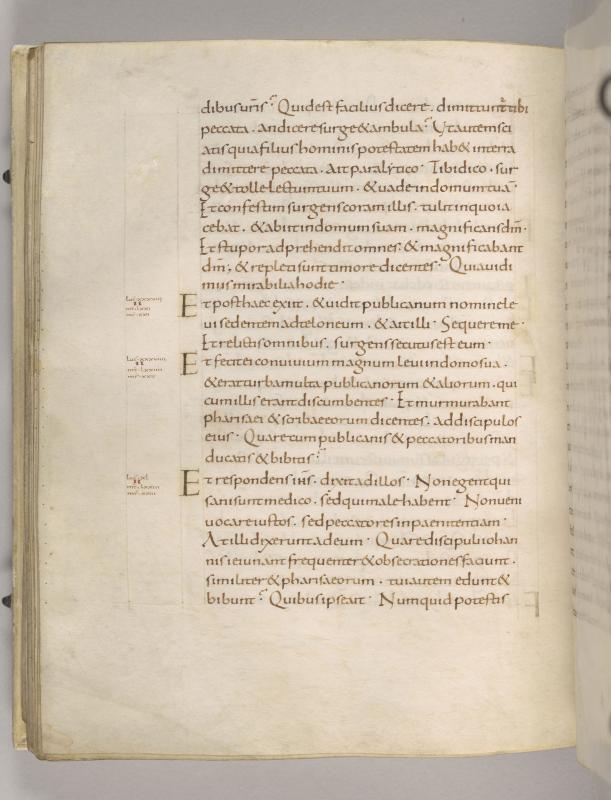 dibus uris; Quid est facilius dicere. dimittuntr tibi
peccata. an dicere surge & ambula; Ut autem sci
atis quia filius hominis potestatem hab& in terra
dimittere peccata. Ait paralytico. Tibi dico. sur
ge & tolle lectum tuum. & uade in domum tuam.
Et confestim surgens coram illis. tulit in quo ia
cebat. & abiit in domum suam. magnificans dm.
Et stupor adprehendit omnes. & magnificabant
dm; & repleti sunt timore dicentes. Quia uidi
mus mirabilia hodie.
Et post haec exiit. & uidit publicanum nomine le
ui sedentem ad teloneum. & ait illi. Sequere me.
Et relictis omnibus. surgens secutus est eum.
Et fecit ei conuiuium magnum leui in domo sua.
& erat turba multa publicanorum & aliorum. qui
cum illis erant discumbentes. Et murmurabant
pharisaei & scribae eorum dicentes. ad discipulos
eius. Quare cum publicanis & peccatoribus man
ducatis & bibitis;
Et respondens ihs. dixit ad illos. Non egent qui
sani sunt medico. sed qui male habent. Non ueni
uocare iustos. sed peccatores in paenitentiam.
At illi dixerunt ad eum. Quare discipuli iohan
nis ieiunant frequenter & obsecrationes faciunt.
similiter & pharisaeorum. tui autem edunt &
bibunt; Quibus ipse ait. Numquid potestis